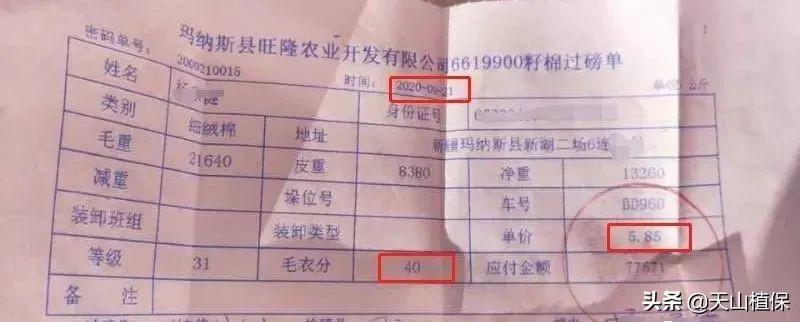 玛纳斯县旺隆农业开发有限公司6619900籽棉过磅单
密码单号: 2009210015 时间: 2020-09-21 单位 公斤
姓名 身份证号
类别 细绒棉 地址 新疆玛纳斯县新湖二场6连
毛重 21640 皮重 8380 净重 13260
减重 垛位号 车号 BD960
装卸班组 装卸类型 单价 5.85
等级 31 毛衣分 40 应付金额 77571
备 注
头条 @天山植保